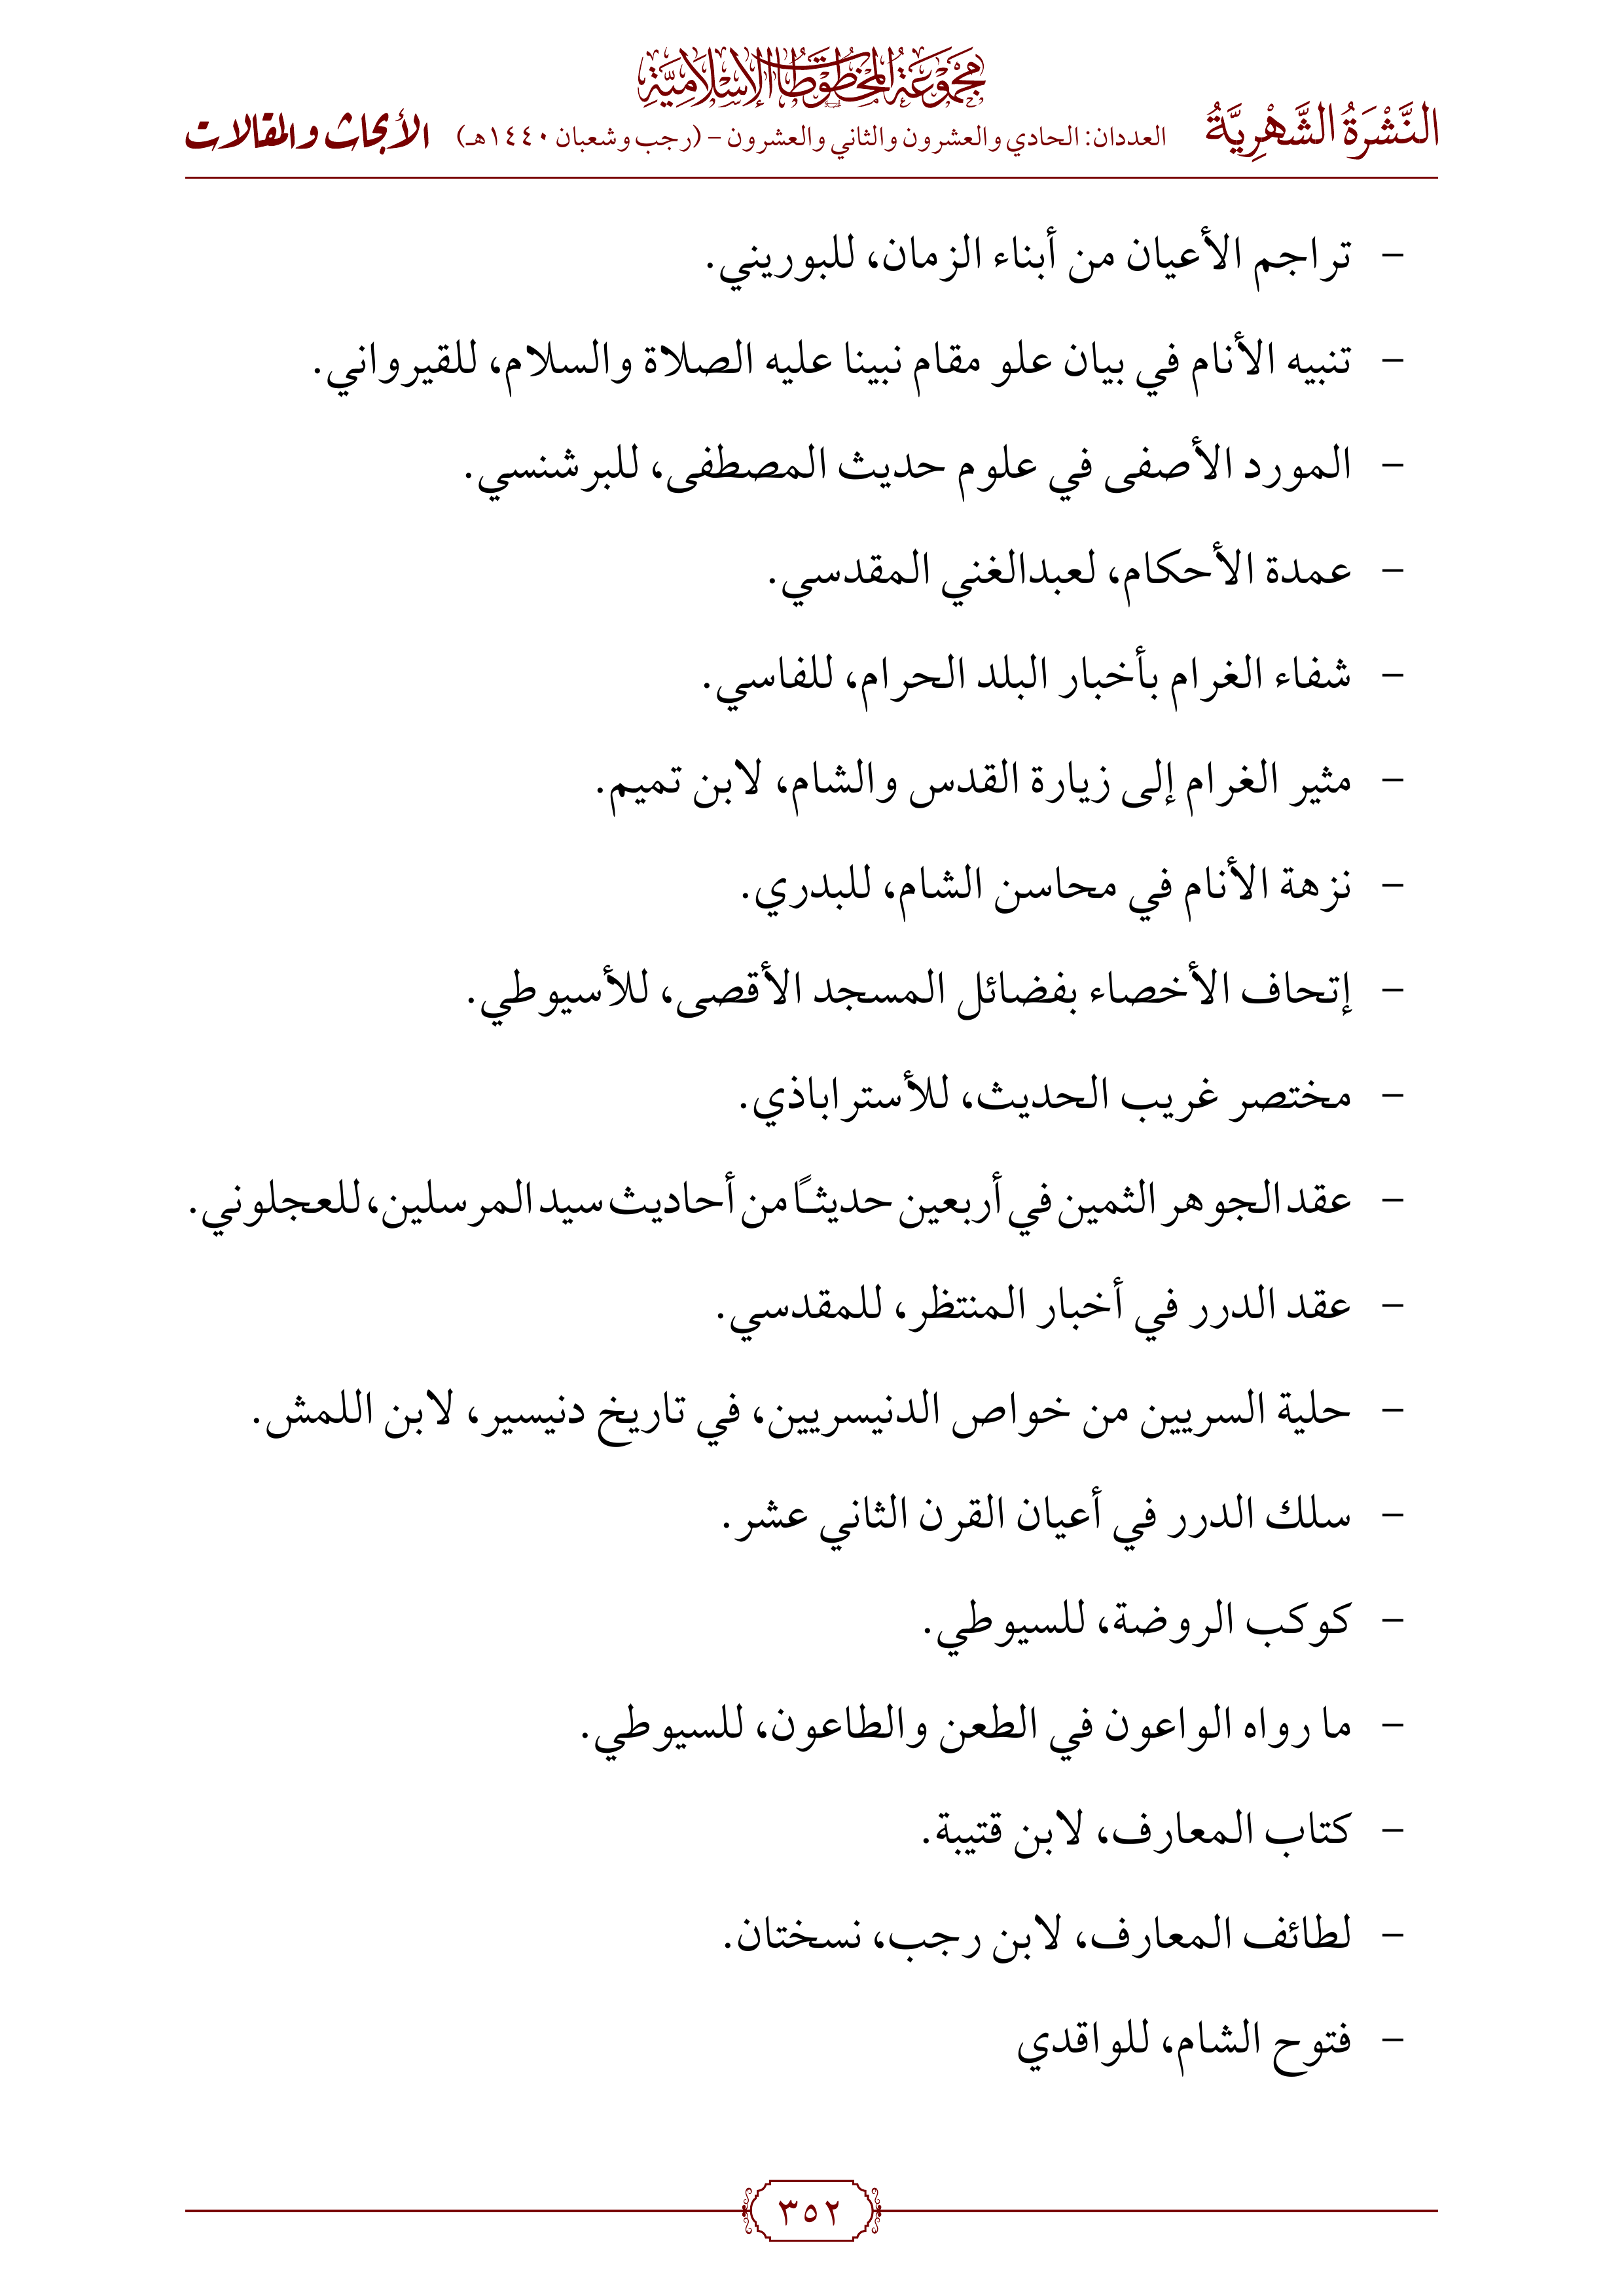 مجموعة المخطوطات الإسلامية
النَّشْرَةُ الشَّهْرِيَّةُ العددان: الحادي والعشرون والثاني والعشرون – (رجب وشعبان ١٤٤٠هـ) الأبحاث والمقالات
– تراجم الأعيان من أبناء الزمان، للبوريني.
– تنبيه الأنام في بيان علو مقام نبينا عليه الصلاة والسلام، للقيرواني.
– المورد الأصفى في علوم حديث المصطفى، للبرشنسي.
– عمدة الأحكام، لعبدالغني المقدسي.
– شفاء الغرام بأخبار البلد الحرام، للفاسي.
– مثير الغرام إلى زيارة القدس والشام، لابن تميم.
– نزهة الأنام في محاسن الشام، للبدري.
– إتحاف الأخصاء بفضائل المسجد الأقصى، للأسيوطي.
– مختصر غريب الحديث، للأستراباذي.
– عقد الجوهر الثمين في أربعين حديثـًا من أحاديث سيد المرسلين، للعجلوني.
– عقد الدرر في أخبار المنتظر، للمقدسي.
– حلية السريين من خواص الدنيسريين، في تاريخ دنيسير، لابن اللمش.
– سلك الدرر في أعيان القرن الثاني عشر.
– كوكب الروضة، للسيوطي.
– ما رواه الواعون في الطعن والطاعون، للسيوطي.
– كتاب المعارف، لابن قتيبة.
– لطائف المعارف، لابن رجب، نسختان.
– فتوح الشام، للواقدي
٣٥٢